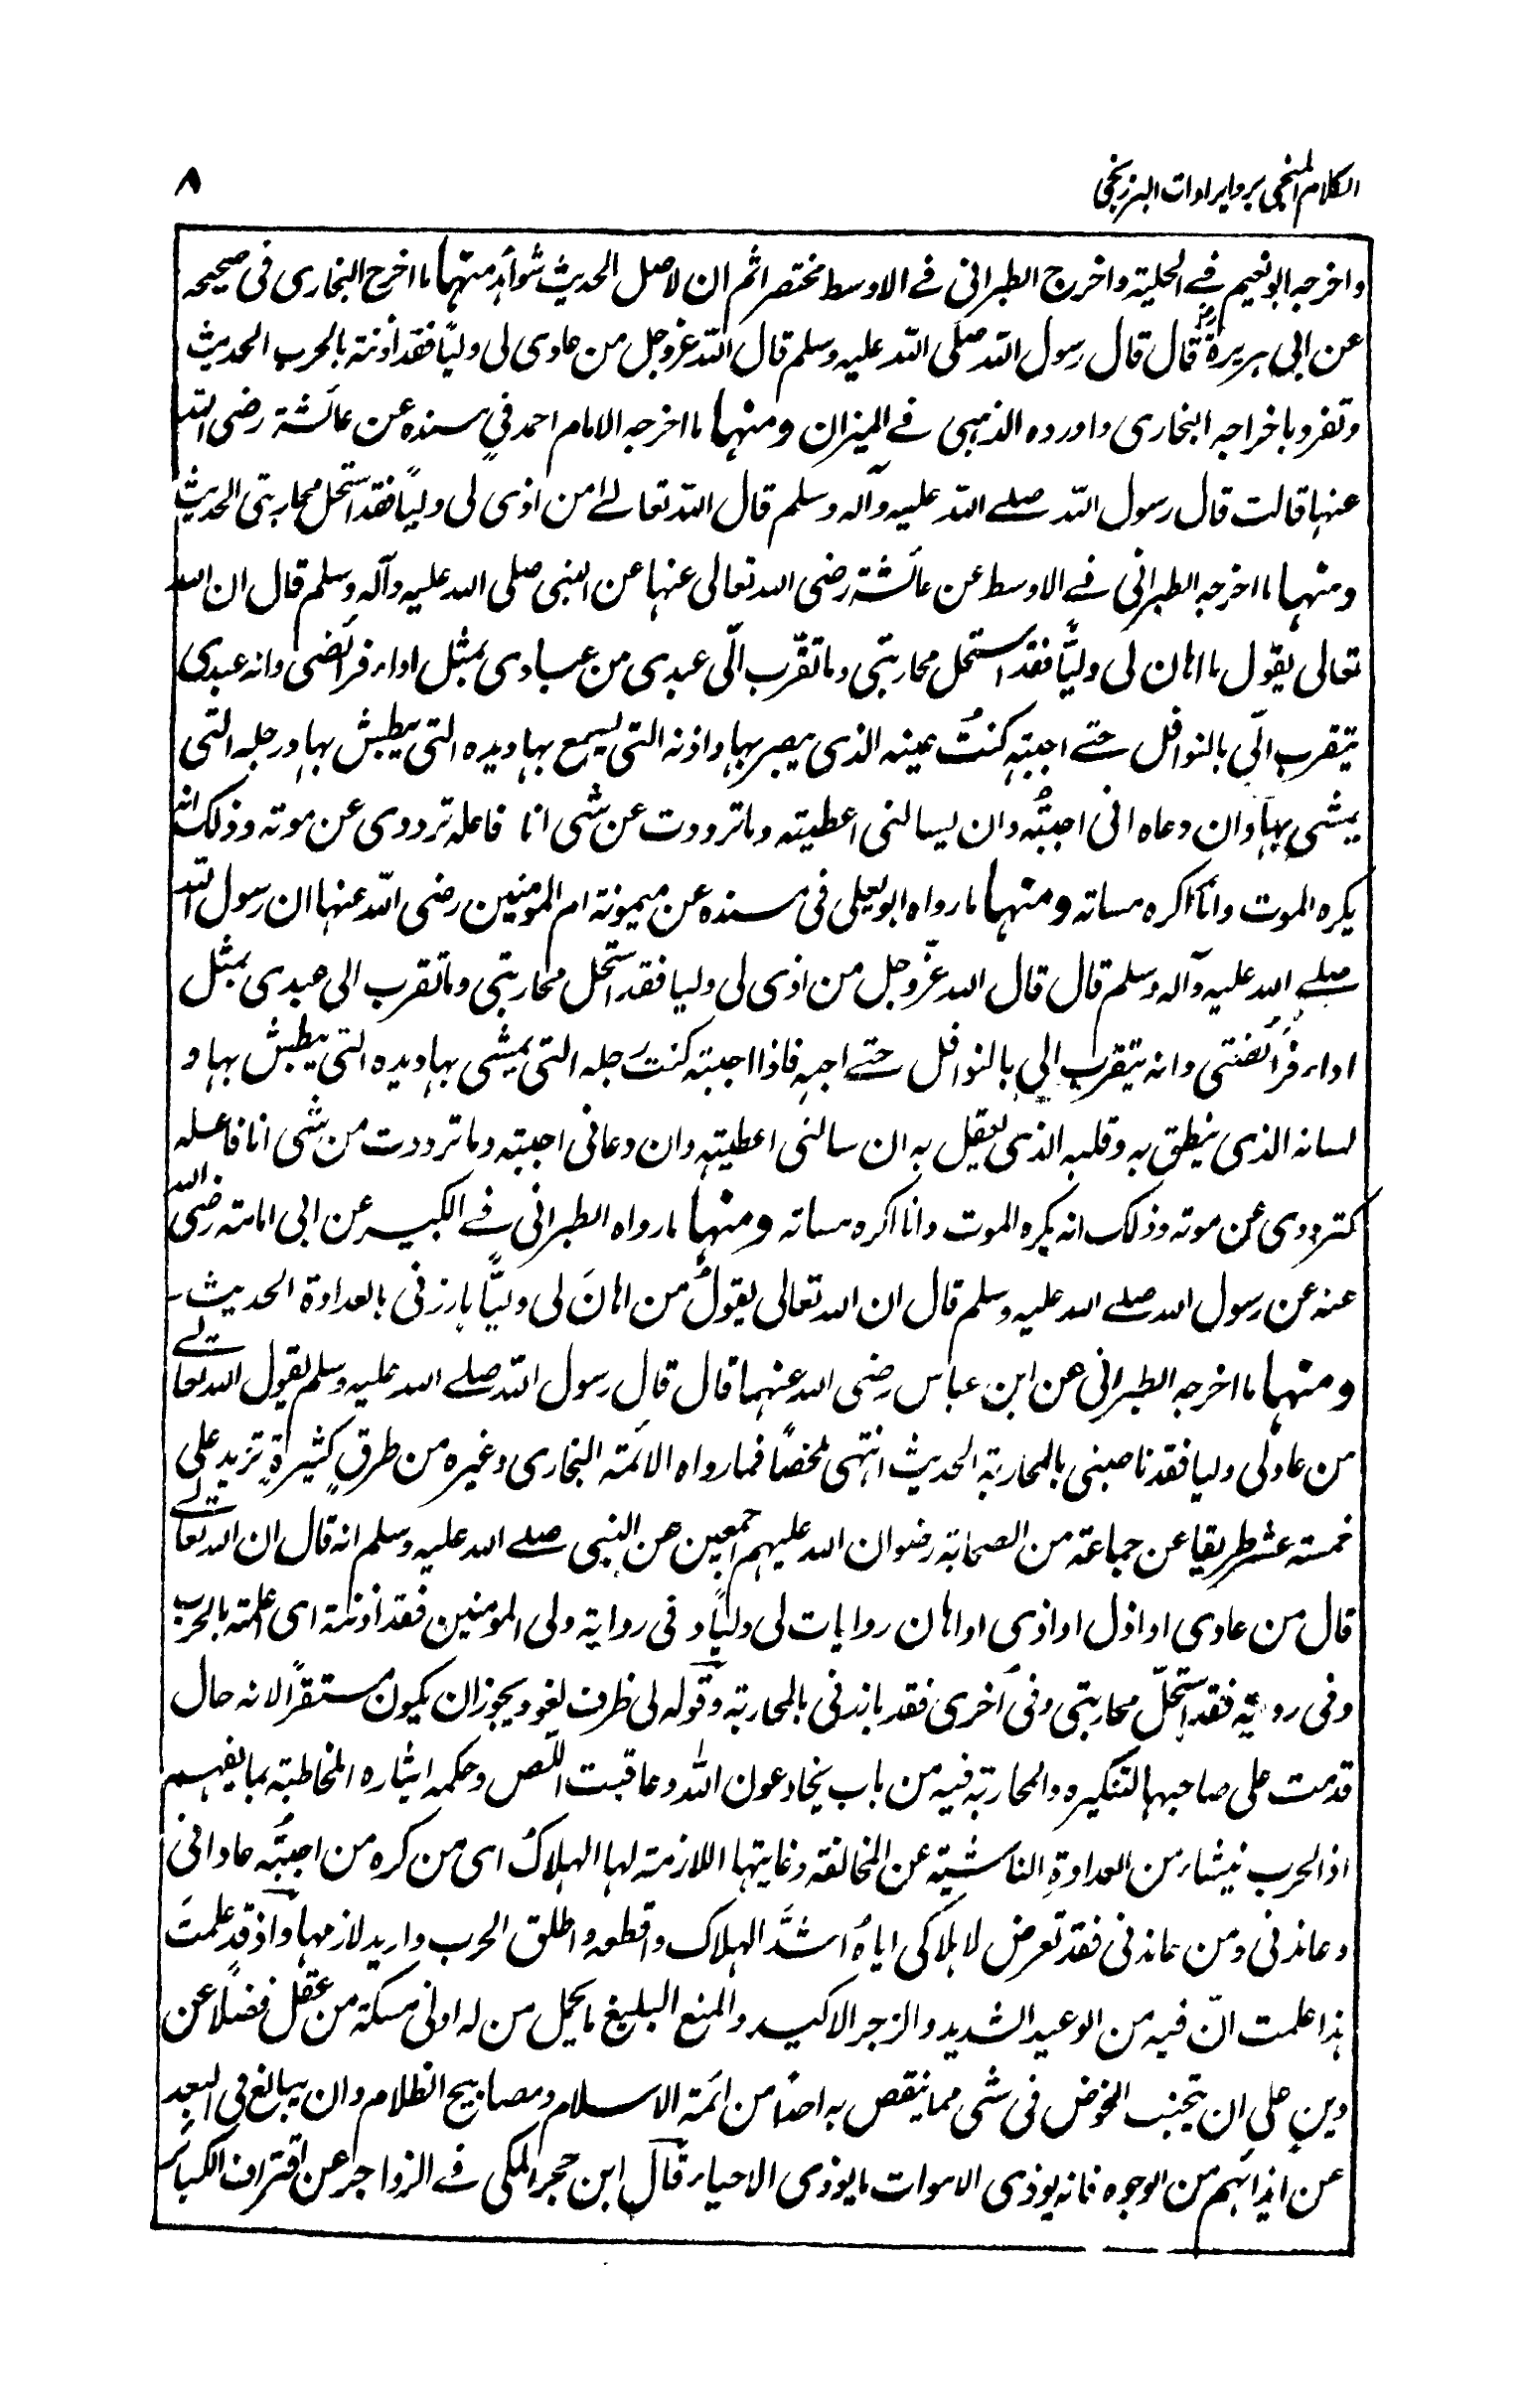 الكلام المنجي برد ايرادات البرزنجي
٨
واخرجه ابو نعيم في الحلية واخرج الطبراني في الاوسط مختصرا ثم ان لاصل الحديث شواهد منها ما اخرج البخاري في صحيحه
عن ابي هريرة رض قال قال رسول الله صلى الله عليه وسلم قال الله عز وجل من عادى لي وليًا فقد أذنته بالحرب الحديث
وتفرد باخراجه البخاري واورده الذهبي في الميزان ومنها ما اخرجه الامام احمد في مسنده عن عائشة رضي الله
عنها قالت قال رسول الله صلى الله عليه وآله وسلم قال الله تعالى من اذى لي وليًا فقد استحل محاربتي الحديث
ومنها ما اخرجه الطبراني في الاوسط عن عائشة رضي الله تعالى عنها عن النبي صلى الله عليه وآله وسلم قال ان الله
تعالى يقول ما اهان لي وليًّا فقد استحل محاربتي وما تقرّب الىّ عبدي من عبادي بمثل اداء فرائضي وانه عبدي
يتقرب الىّ بالنوافل حتى احببته كنتُ عينه الذي يبصر بها واذنه التي يسمع بها ويده التي يبطش بها ورجله التي
يمشي بها وان دعاه اني اجبتُه وان يسالني اعطيته وما ترددت عن شي انا فاعله ترددي عن موته وذلك انه
يكره الموت وانا اكره مساته ومنها ما رواه ابو يعلى في مسنده عن ميمونة ام المومنين رضي الله عنها ان رسول الله
صلى الله عليه وآله وسلم قال قال الله عزّ وجل من اذى لي وليا فقد استحل محاربتي وما تقرب الى عبدي بمثل
اداء فرائضتي وانه يتقرب الي بالنوافل حتى احبه فاذا احببته كنت رجله التي يمشي بها ويده التي يبطش بها و
لسانه الذي ينطق به وقلبه الذي يعقل به ان سالني اعطيته وان دعاني اجبته وما ترددت من شي انا فاعله
كترددي عن موته وذلك انه يكره الموت وانا اكره مساته ومنها ما رواه الطبراني في الكبير عن ابي امامة رضي الله
عنه عن رسول الله صلى الله عليه وسلم قال ان الله تعالى يقولُ من اهانَ لي وليًّا بارزني بالعداوة الحديث
ومنها ما اخرجه الطبراني عن ابن عباس رضي الله عنهما قال قال رسول الله صلى الله عليه وسلم يقول الله تعالى
من عاد لي وليا فقد ناصبني بالمحاربة الحديث انتهى ملخصًا فما رواه الائمة البخاري وغيره من طرقٍ كثيرةٍ تزيد على
خمسته عشر طريقا عن جماعة من الصحابة رضوان الله عليهم اجمعين عن النبي صلى الله عليه وسلم انه قال ان الله تعالى
قال من عادى او اذل او اذى او اهان روايات لي وليًا وفي رواية ولي المومنين فقد أذنته اى اعلمته بالحرب
وفي رواية فقد استحلّ محاربتي وفي أخرى فقد بارزني بالمحاربة وقوله لي ظرف لغو ويجوز ان يكون مستقرًا لانه حال
قدمت على صاحبها لتنكيره والمحاربة فيه من باب يخادعون الله وعاقبت اللّص وحكمه ايثاره المخاطبة بما يفهم
اذ الحرب ينشاء من العداوةِ الناشية عن المخالفة وغايتها اللازمة لها الهلاكُ اى من كره من احببتُه عاداني
وعاندني ومن عاندني فقد تعرض لاهلاكي اياهُ اشدَّ الهلاك واقطعه واطلق الحرب واريد لازمها واذ قد علمتَ
هذا علمت انّ فيه من الوعيد الشديد والزجر الاكيد والمنع البليغ ما يحمل من له ادنى مسكة من عقل فضلًا عن
دينٍ على ان يتجنب الخوض في شي مما ينقص به احدًا من ائمة الاسلام ومصابيح الظلام وان يبالغ في البعد
عن ايذائهم من الوجوه فانه يوذي الاموات ما يوذي الاحياء قال ابن حجر المكي في الزواجر عن اقتراف الكبائر